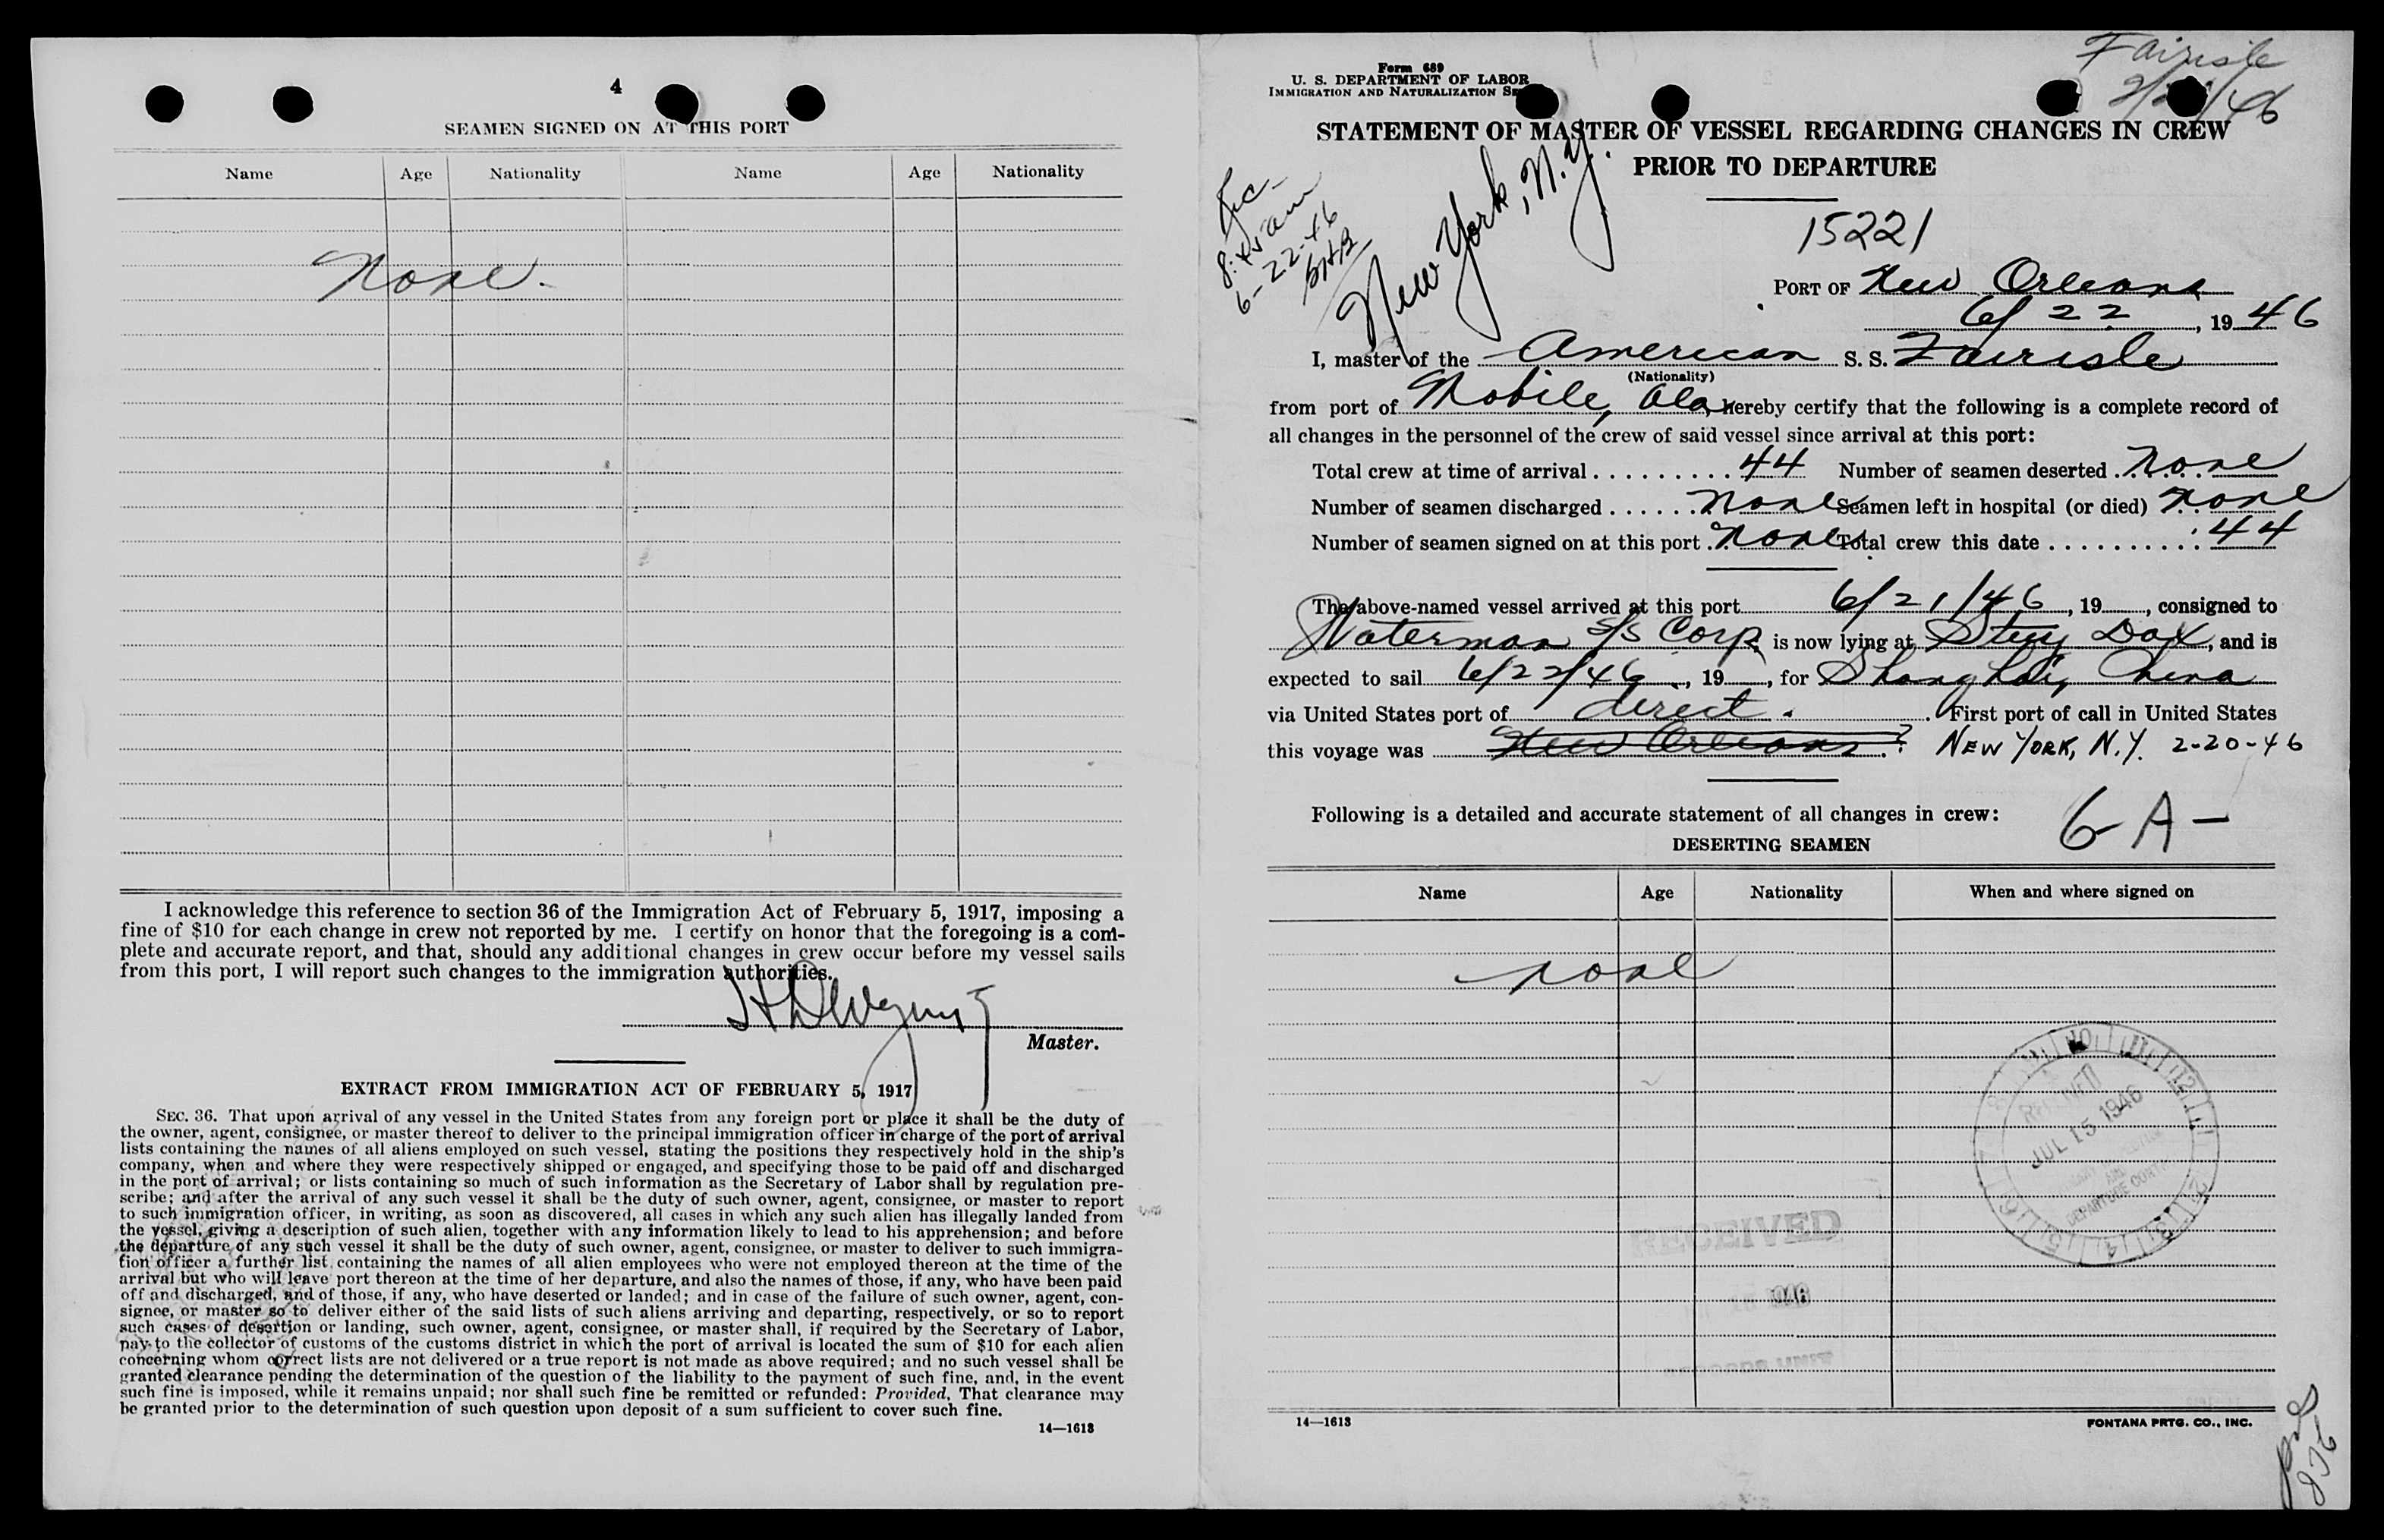 4
SEAMEN SIGNED ON AT THIS PORT
Name Age Nationality Name Age Nationality
None.
I acknowledge this reference to section 36 of the Immigration Act of February 5, 1917, imposing a
fine of $10 for each change in crew not reported by me. I certify on honor that the foregoing is a com-
plete and accurate report, and that, should any additional changes in crew occur before my vessel sails
from this port, I will report such changes to the immigration authorities.
Master.
EXTRACT FROM IMMIGRATION ACT OF FEBRUARY 5, 1917
SEC. 36. That upon arrival of any vessel in the United States from any foreign port or place it shall be the duty of
the owner, agent, consignee, or master thereof to deliver to the principal immigration officer in charge of the port of arrival
lists containing the names of all aliens employed on such vessel, stating the positions they respectively hold in the ship's
company, when and where they were respectively shipped or engaged, and specifying those to be paid off and discharged
in the port of arrival; or lists containing so much of such information as the Secretary of Labor shall by regulation pre-
scribe; and after the arrival of any such vessel it shall be the duty of such owner, agent, consignee, or master to report
to such immigration officer, in writing, as soon as discovered, all cases in which any such alien has illegally landed from
the vessel, giving a description of such alien, together with any information likely to lead to his apprehension; and before
the departure of any such vessel it shall be the duty of such owner, agent, consignee, or master to deliver to such immigra-
tion officer a further list containing the names of all alien employees who were not employed thereon at the time of the
arrival but who will leave port thereon at the time of her departure, and also the names of those, if any, who have been paid
off and discharged, and of those, if any, who have deserted or landed; and in case of the failure of such owner, agent, con-
signee, or master so to deliver either of the said lists of such aliens arriving and departing, respectively, or so to report
such cases of desertion or landing, such owner, agent, consignee, or master shall, if required by the Secretary of Labor,
pay to the collector of customs of the customs district in which the port of arrival is located the sum of $10 for each alien
concerning whom correct lists are not delivered or a true report is not made as above required; and no such vessel shall be
granted clearance pending the determination of the question of the liability to the payment of such fine, and, in the event
such fine is imposed, while it remains unpaid; nor shall such fine be remitted or refunded: Provided, That clearance may
be granted prior to the determination of such question upon deposit of a sum sufficient to cover such fine.
14—1613
Fairisle
Form 689
U. S. DEPARTMENT OF LABOR
IMMIGRATION AND NATURALIZATION
STATEMENT OF MASTER OF VESSEL REGARDING CHANGES IN CREW
PRIOR TO DEPARTURE
8:45 am
6-22-46
New York, N.Y.
15221
PORT OF New Orleans
6/22, 1946
I, master of the American S. S. Fairisle
(Nationality)
from port of Mobile, Ala, hereby certify that the following is a complete record of
all changes in the personnel of the crew of said vessel since arrival at this port:
Total crew at time of arrival 44 Number of seamen deserted None
Number of seamen discharged None Seamen left in hospital (or died) None
Number of seamen signed on at this port None Total crew this date 44
The above-named vessel arrived at this port 6/21/46, 19 , consigned to
Waterman S/S Corp. is now lying at , and is
expected to sail 6/22/46, 19 , for Shanghai, China
via United States port of direct. First port of call in United States
this voyage was New Orleans. ? NEW YORK, N.Y. 2-20-46
Following is a detailed and accurate statement of all changes in crew:
6 A -
DESERTING SEAMEN
Name Age Nationality When and where signed on
None
RECEIVED
JUL 15 1946
DEPARTURE
RECEIVED
1946
14—1613
FONTANA PRTG. CO., INC.